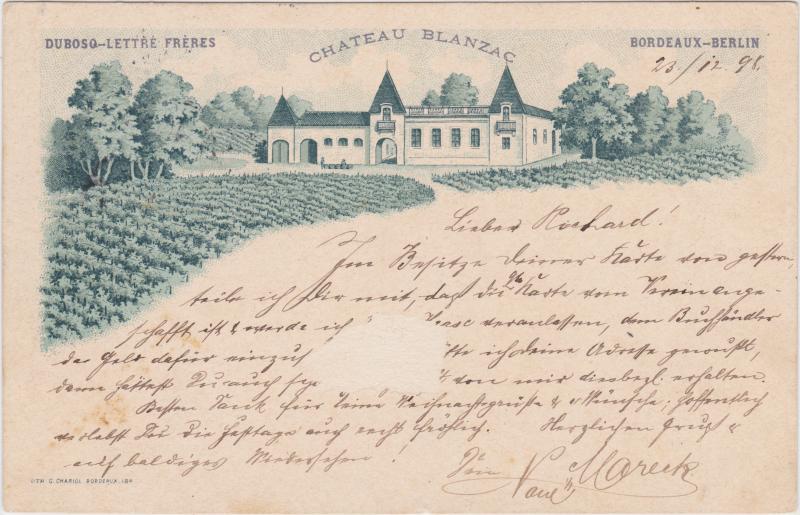 DUBOSQ-LETTRÉ FRÈRES
CHATEAU BLANZAC
BORDEAUX-BERLIN
23./12.98.
Lieber Richard!
Im Besitze Deiner Karte von gestern,
teile ich Dir mit, daß die Karte vom Verein ange-
schafft ist & werde ich veranlassen, dem Buchhändler
das Geld dafür einzuh ich Deine Adresse gewußt,
dann hättest Du auch von mir diesbezl. erhalten.
Besten Dank für Deine Weihnachtsgrüße & Wünsche; hoffentlich
verlebst Du die Festtage auch recht fröhlich. Herzlichen Gruß &
auf baldiges Wiedersehen! Dein
Mareck
LITH. G. CHARIOL BORDEAUX.